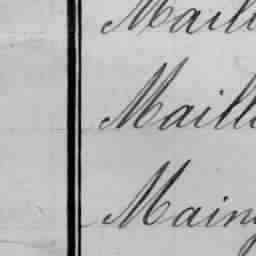 Maill
Maill
Maing